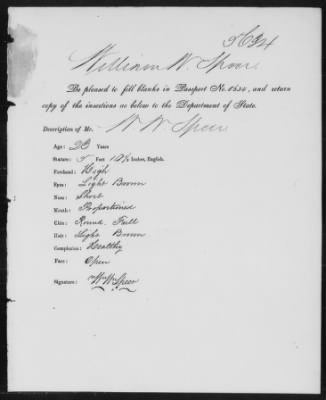 William W. Speer
Be pleased to fill blanks in Passport No. and return
copy of the insertions as below to the Department of State.
Description of Mr. W W Speer
Age: Years
Stature: 5 Feet Inches, English.
Forehead: High
Eyes: Light Brown
Nose: Short
Mouth: Proportioned
Chin: Round. Full
Hair: Light Brown
Complexion: Healthy
Face: Open
Signature: W W Speer